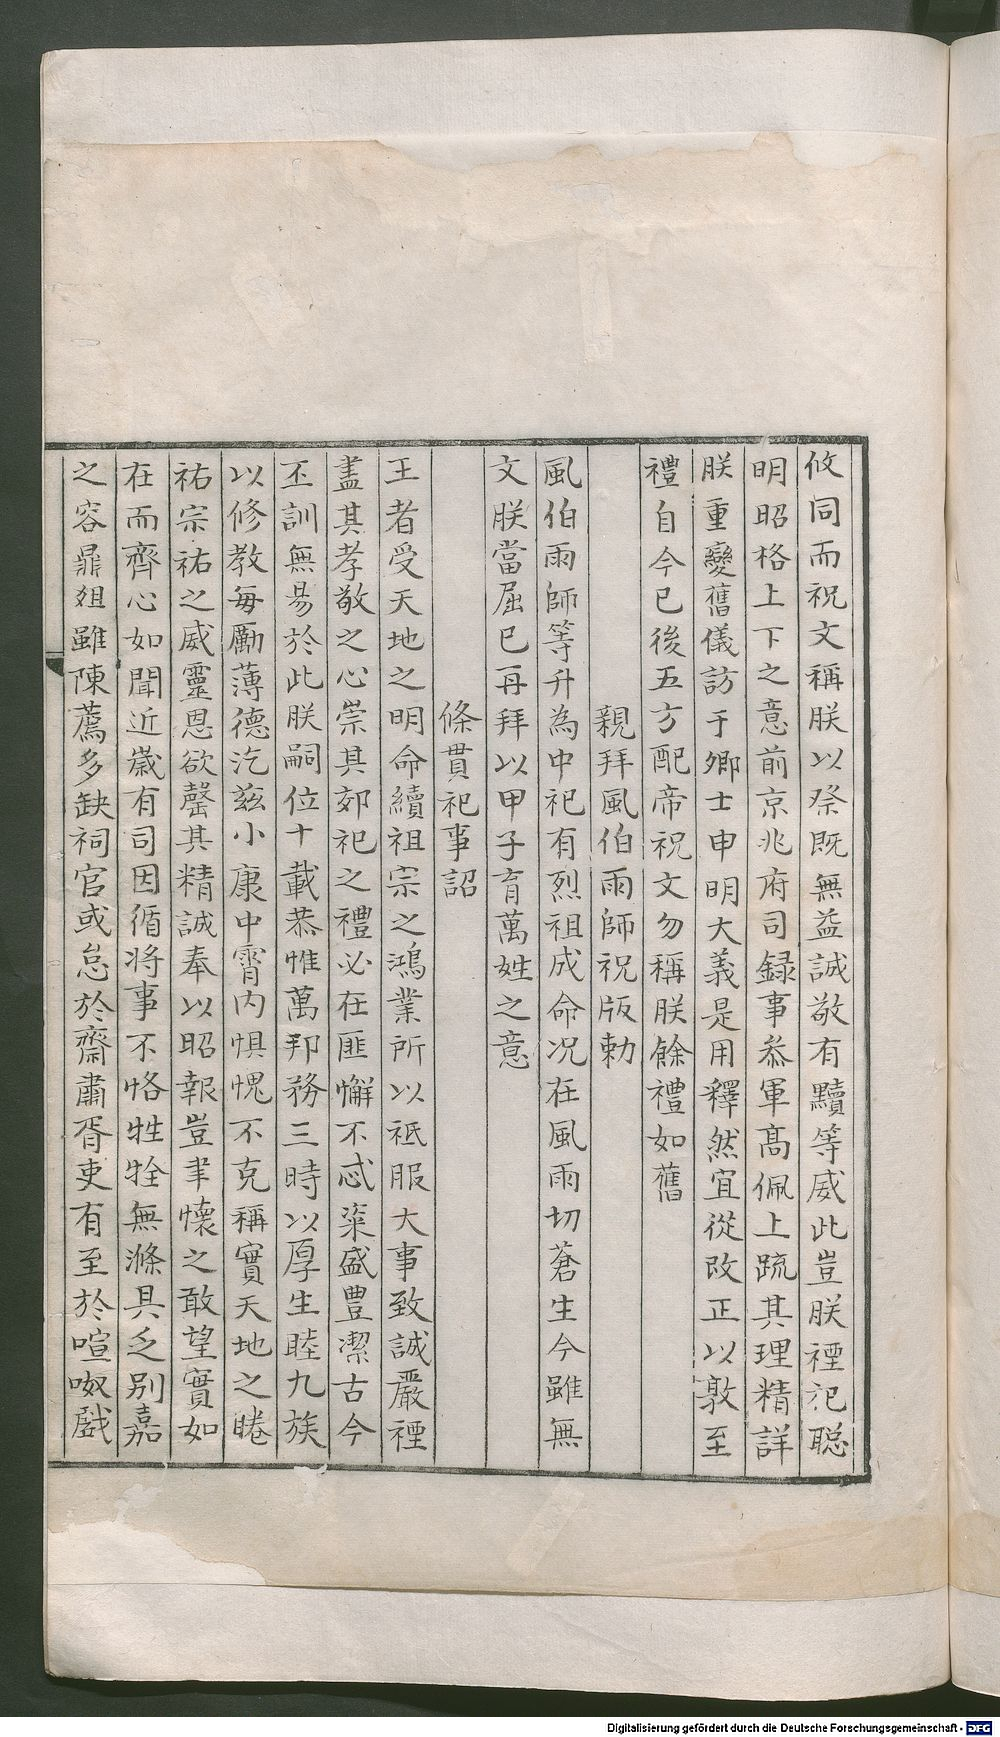 攸同而祝文稱朕以祭既無益誠敬有黷等威此豈朕禋祀聡
明昭格上下之意前京兆府司録事叅軍髙佩上䟽其理精詳
朕重變舊儀訪于卿士申明大義是用釋然宜從改正以敦至
禮自今已後五方配帝祝文勿稱朕餘禮如舊
親拜風伯雨師祝版勅
風伯雨師等升為中祀有烈祖成命况在風雨切蒼生今雖無
文朕當屈已再拜以甲子育萬姓之意
條貫祀事詔
王者受天地之明命纉祖宗之鴻業所以祇服大事致誠嚴禋
盡其孝敬之心崇其郊祀之禮必在匪懈不忒粢盛豊潔古今
丕訓無昜於此朕嗣位十載恭惟萬邦務三時以厚生睦九族
以修教每勵薄德汔兹小康中霄内惧愧不克稱實天地之睠
祐宗祐之威靈思欲罄其精誠奉以昭報豈聿懷之敢望實如
在而齊心如聞近嵗有司因循将事不恪牲牷無滌具乏别嘉
之容鼎爼雖陳薦多缺祠官或怠於齋肅胥吏有至於喧呶戯
Digitalisierung gefördert durch die Deutsche Forschungsgemeinschaft - DFG